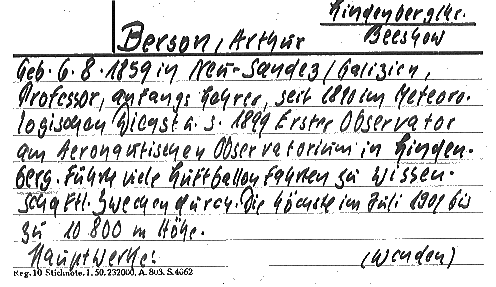 Lindenberg/Kr.
Beeskow
Berson, Arthur
Geb. 6. 8. 1859 in Neu-Sandez/Galizien,
Professor, anfangs Lehrer, seit 1890 im Meteoro-
logischen Dienst u. s. 1899 Erster Observator
am Aeronautischen Observatorium in Linden-
berg. Führte viele Luftballonfahrten zu wissen-
schaftl. Zwecken durch. Die höchste im Juli 1901 bis
zu 10 800 m Höhe.
Hauptwerke: (wenden)
Reg. 10 Stichnote. 1. 50. 232000. A. 803. S. 4662